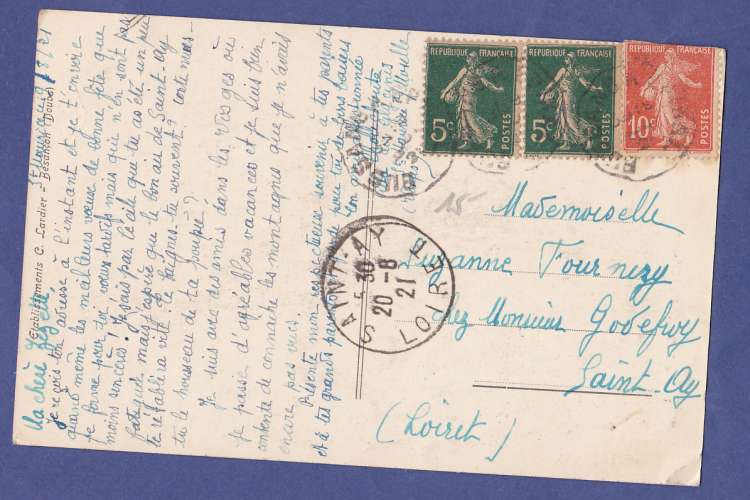 9/8/21
Ma chère Zézette
je reçois ton adresse à l'instant et je t'envoie
quand même les meilleurs vœux de bonne fête que
je forme pour toi, vœux tardifs mais qui n'en sont pas
moins sincères! J'apprends par Cécile que tu as été un peu
fatiguée, mais j'espère que le bon air de Saint-Ay
te rétablira vite. Te baignes-tu souvent?
tu le trousseau de ta poupée?
Je suis avec des amis dans les Vosges où
je passe d'agréables vacances et je suis bien
contente de connaître les montagnes que je n'avais
encore pas vues.
Présente mon respectueux souvenir à tes parents
et à tes grands parents pour toi de bons baisers
Ton
Etablissements C. Lardier - Besançon (Doubs)
REPUBLIQUE FRANÇAISE
5c
POSTES
REPUBLIQUE FRANÇAISE
5c
POSTES
REPUBLIQUE FRANÇAISE
10c
POSTES
15
SAINT-AY
5 30
20 -8
21
LOIRET
Mademoiselle
Suzanne Fournezy
chez Monsieur Godefroy
Saint-Ay
(Loiret)